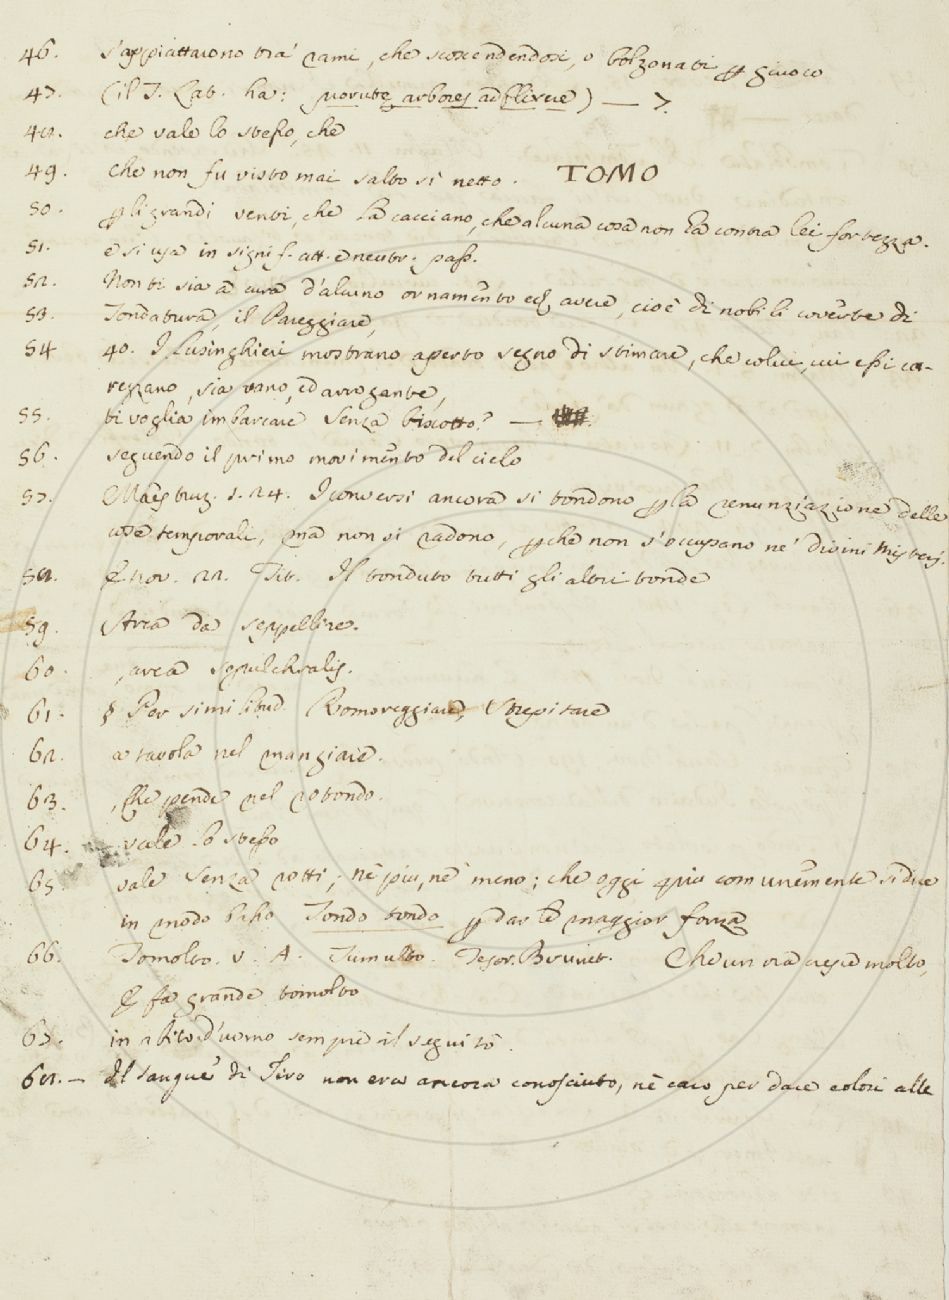 46. s'appiattarono tra' rami, che scoscendendosi, o bolzonati ꝑ giuoco
47. (il T. Lat. ha: ) — 7.
48. che vale lo stesso, che
49. che non fu visto mai salto sì netto. TOMO
50. ꝑ li grandi venti, che la cacciano, che alcuna cosa non ha contra lei fortezza.
51. e si usa in signif. att. e neutr. pass.
52. Non ti sia a cura d'alcuno ornamento avere, cioè di nobili coverte di
53. Tondatura, il Pareggiare,
54 40. I Lusinghieri mostrano aperto segno di stimare, che colui, cui essi ca-
rezzano, sia vano, ed arrogante,
55. ti voglia imbarcare senza biscotto? —
56. seguendo il primo movimento del cielo
57. Maestruz. 1. 24. I conversi ancora si tondono ꝑ la renunziazione delle
cose temporali, ma non si radono, ꝑchè non s'occupano ne' divini misterj.
58. E nov. 22. Tit. Il tonduto tutti gli altri tonde
59. Arca da seppellire.
60. , arca sepulchralis.
61. § Per similitud. Romoreggiare, Strepitare
62. a tavola nel mangiare.
63. , Che pende nel rotondo.
64. vale lo stesso
65 vale Senza rotti, nè più, nè meno; che oggi più comunemente si dice
in modo basso Tondo tondo ꝑ dar le maggior forza
66. Tomolto. v. A. Tumulto. Tesor. Brunet. Che un ria cresce molto,
E fa grande tomolto
67. in abito d'uomo sempre il seguitò.
68. — Il sangue di Tiro non era ancora conosciuto, nè caro per dare colori alle